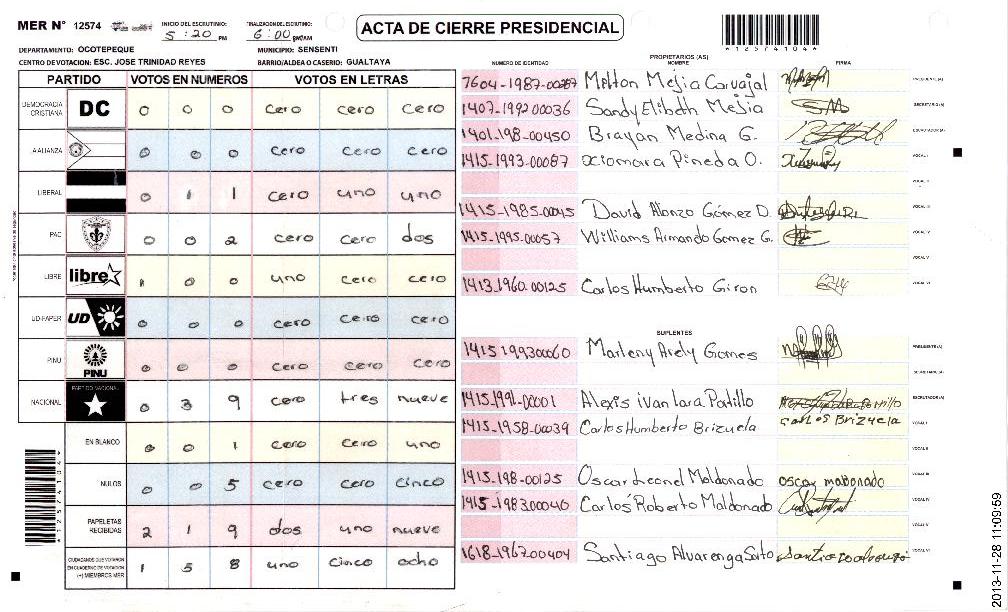 MER N° 12574
INICIO DEL ESCRUTINIO: 5:20 PM
FINALIZACION DEL ESCRUTINIO: 6:00 PM/AM
ACTA DE CIERRE PRESIDENCIAL
*12574104*
DEPARTAMENTO: OCOTEPEQUE MUNICIPIO: SENSENTI
CENTRO DE VOTACION: ESC. JOSE TRINIDAD REYES BARRIO/ALDEA O CASERIO: GUALTAYA
PARTIDO VOTOS EN NUMEROS VOTOS EN LETRAS
DEMOCRACIA CRISTIANA DC 0 0 0 cero cero cero
ALIANZA 0 0 0 cero cero cero
LIBERAL 0 1 1 cero uno uno
PAC 0 0 2 cero cero dos
LIBRE libre 1 0 0 uno cero cero
UD-FAPER UD 0 0 0 cero cero cero
PINU PINU 0 0 0 cero cero cero
NACIONAL PARTIDO NACIONAL 0 3 9 cero tres nueve
EN BLANCO 0 0 1 cero cero uno
NULOS 0 0 5 cero cero cinco
PAPELETAS RECIBIDAS 2 1 9 dos uno nueve
CIUDADANOS QUE VOTARON EN CUADERNO DE VOTACION (+) MIEMBROS MER 1 5 8 uno cinco ocho
*12574104*
PROPIETARIOS (AS)
NUMERO DE IDENTIDAD NOMBRE FIRMA
Melton Mejia Carvajal PRESIDENTE(A)
1407-1992 00036 Sandy Elibeth Mejia SECRETARIO(A)
1401-198-00450 Brayan Medina G. ESCRUTADOR(A)
1415-1993-00087 xiomara Pineda O. VOCAL I
VOCAL II
1415-1985-0045 David Alonzo Gómez D. VOCAL III
1415-1995-00057 Williams Armando Gomez G. VOCAL IV
VOCAL V
1413-1960-00125 Carlos Humberto Giron VOCAL VI
SUPLENTES
1415 199300060 Marleny Arely Gomes PRESIDENTE(A)
SECRETARIO(A)
1415-1991-00001 Alexis ivan lara Portillo ESCRUTADOR(A)
1415-1958-00039 Carlos Humberto Brizuela carlos Brizuela VOCAL I
VOCAL II
1415-198-00125 Oscar Leonel Maldonado oscar maldonado VOCAL III
1415-1983-00040 Carlos Roberto Maldonado VOCAL IV
VOCAL V
1618-1967-00404 Santiago Alvarenga Soto VOCAL VI
2013-11-28 11:09:59